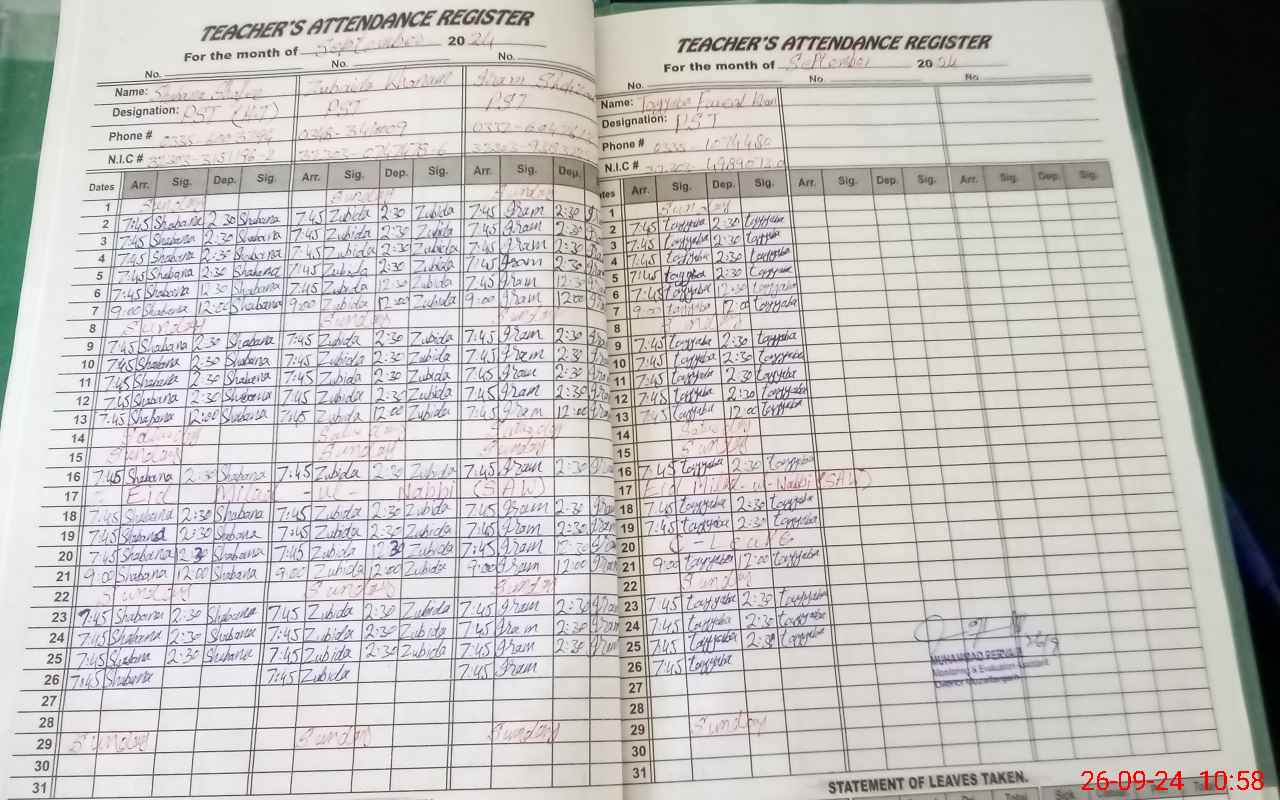 TEACHER'S ATTENDANCE REGISTER
For the month of September 2024
No. No. No.
Name: Shabana Zubaida Khanam Iram
Designation: PST PST PST
Phone #
N.I.C #
Dates Arr. Sig. Dep. Sig. Arr. Sig. Dep. Sig. Arr. Sig. Dep.
1 Sunday Sunday Sunday
2 7:45 Shabana 2:30 Shabana 7:45 Zubida 2:30 Zubida 7:45 Iram 2:30
3 7:45 Shabana 2:30 Shabana 7:45 Zubida 2:30 Zubida 7:45 Iram 2:30
4 7:45 Shabana 2:30 Shabana 7:45 Zubida 2:30 Zubida 7:45 Iram 2:30
5 7:45 Shabana 2:30 Shabana 7:45 Zubida 2:30 Zubida 7:45 Iram 2:30
6 7:45 Shabana 12:30 Shabana 7:45 Zubida 12:30 Zubida 7:45 Iram 12:30
7 9:00 Shabana 12:00 Shabana 9:00 Zubida 12:00 Zubida 9:00 Iram 12:00
8 Sunday Sunday Sunday
9 7:45 Shabana 2:30 Shabana 7:45 Zubida 2:30 Zubida 7:45 Iram 2:30
10 7:45 Shabana 2:30 Shabana 7:45 Zubida 2:30 Zubida 7:45 Iram 2:30
11 7:45 Shabana 2:30 Shabana 7:45 Zubida 2:30 Zubida 7:45 Iram 2:30
12 7:45 Shabana 2:30 Shabana 7:45 Zubida 2:30 Zubida 7:45 Iram 2:30
13 7:45 Shabana 12:00 Shabana 7:45 Zubida 12:00 Zubida 7:45 Iram 12:00
14 Saturday Saturday Saturday
15 Sunday Sunday Sunday
16 7:45 Shabana 2:30 Shabana 7:45 Zubida 2:30 Zubida 7:45 Iram 2:30
17 Eid Milad -u- Nabbi (SAW)
18 7:45 Shabana 2:30 Shabana 7:45 Zubida 2:30 Zubida 7:45 Iram 2:30
19 7:45 Shabana 2:30 Shabana 7:45 Zubida 2:30 Zubida 7:45 Iram 2:30
20 7:45 Shabana 12:30 Shabana 7:45 Zubida 12:30 Zubida 7:45 Iram 12:30
21 9:00 Shabana 12:00 Shabana 9:00 Zubida 12:00 Zubida 9:00 Iram 12:00
22 Sunday Sunday Sunday
23 7:45 Shabana 2:30 Shabana 7:45 Zubida 2:30 Zubida 7:45 Iram 2:30
24 7:45 Shabana 2:30 Shabana 7:45 Zubida 2:30 Zubida 7:45 Iram 2:30
25 7:45 Shabana 2:30 Shabana 7:45 Zubida 2:30 Zubida 7:45 Iram 2:30
26 7:45 Shabana 7:45 Zubida 7:45 Iram
27
28
29 Sunday Sunday Sunday
30
31
TEACHER'S ATTENDANCE REGISTER
For the month of September 2024
No. No. No.
Name: Tayyaba Khan
Designation: PST
Phone #
N.I.C #
Arr. Sig. Dep. Sig. Arr. Sig. Dep. Sig. Arr. Sig. Dep. Sig.
1 Sunday
2 7:45 tayyaba 2:30 tayyaba
3 7:45 tayyaba 2:30 tayyaba
4 7:45 tayyaba 2:30 tayyaba
5 7:45 tayyaba 2:30 tayyaba
6 7:45 tayyaba 12:30 tayyaba
7 9:00 tayyaba 12:00 tayyaba
8 Sunday
9 7:45 tayyaba 2:30 tayyaba
10 7:45 tayyaba 2:30 tayyaba
11 7:45 tayyaba 2:30 tayyaba
12 7:45 tayyaba 2:30 tayyaba
13 7:45 tayyaba 12:00 tayyaba
14 Saturday
15 Sunday
16 7:45 tayyaba 2:30 tayyaba
17 Eid Milad-u-Nabbi (SAW)
18 7:45 tayyaba 2:30 tayyaba
19 7:45 tayyaba 2:30 tayyaba
20 C-Leave
21 9:00 tayyaba 12:00 tayyaba
22 Sunday
23 7:45 tayyaba 2:30 tayyaba
24 7:45 tayyaba 2:30 tayyaba
25 7:45 tayyaba 2:30 tayyaba
26 7:45 tayyaba
27
28
29 Sunday
30
31
26/9
MUHAMMAD
Monitoring & Evaluation Assistant
District Muzaffargarh
STATEMENT OF LEAVES TAKEN.
26-09-24 10:58